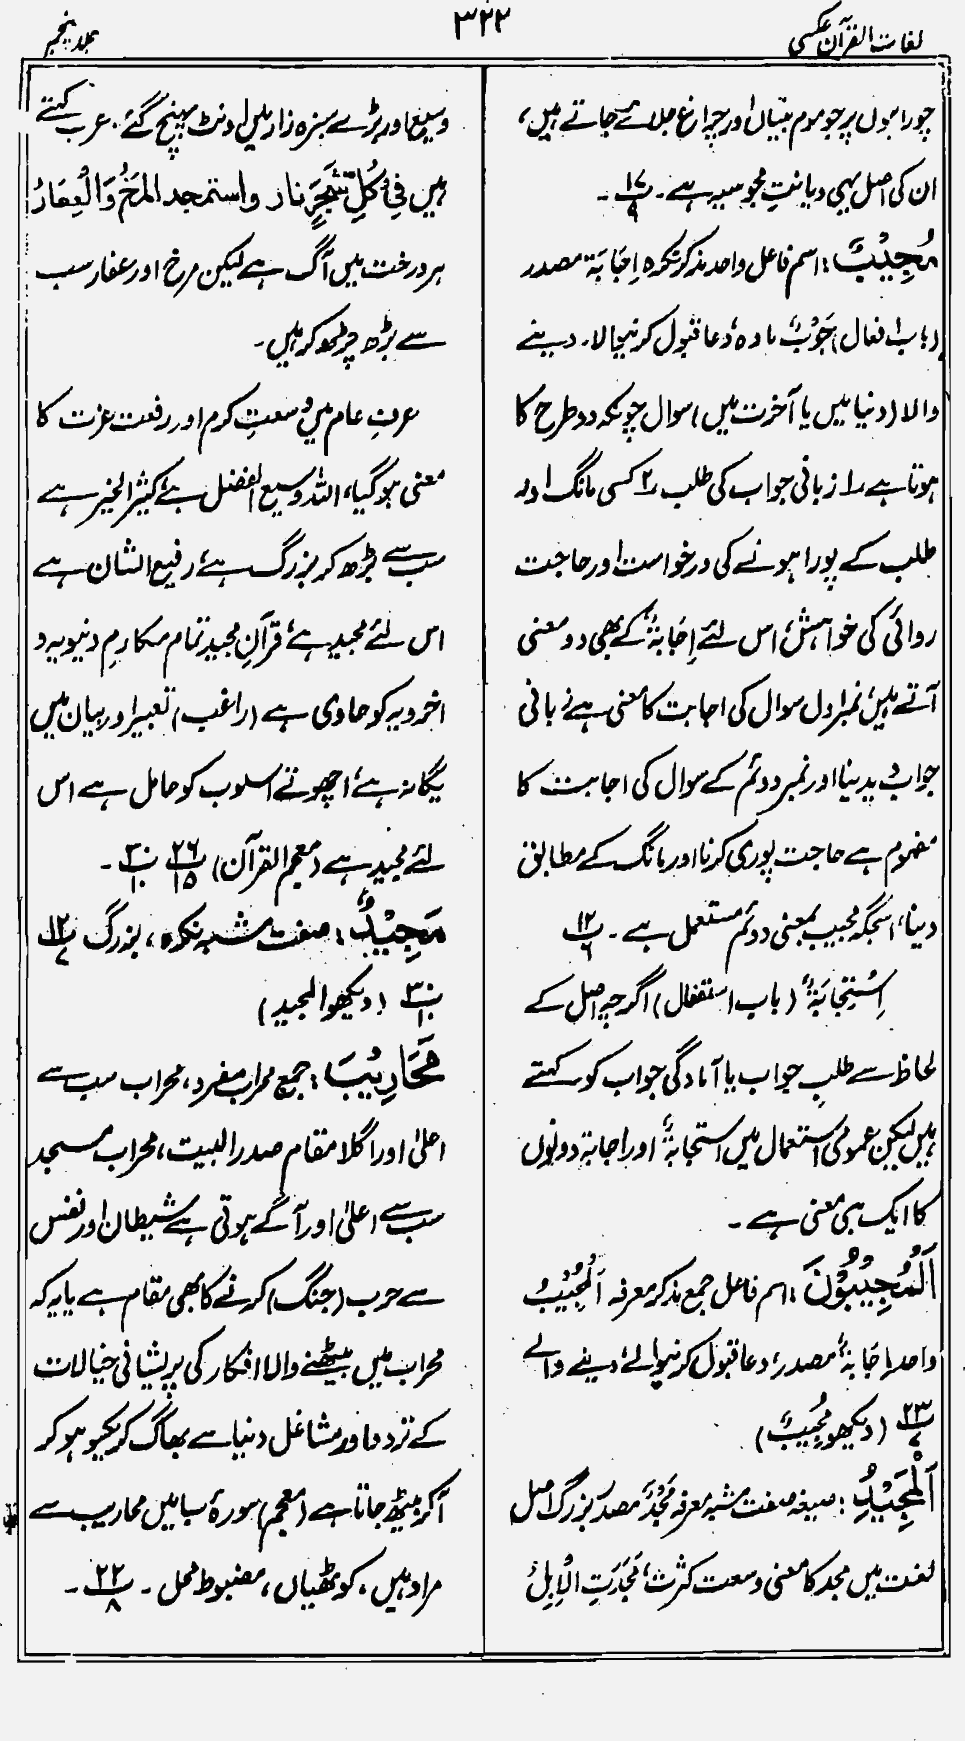 لغات القرآن عکسی
۳۲۲
جلد پنجم
چوراہوں پر جو موم بتیاں اور چراغ جلائے جاتے ہیں،
ان کی اصل یہی دیانتِ مجوسیہ ہے۔ پ۱۷ ۹ ۔
مُجِیْبٌ : اسم فاعل واحد مذکر نکرہ اِجَابَۃ مصدر
(باب افعال) جَوْبٌ مادہ، دعا قبول کرنیوالا۔ دینے
والا (دنیا میں یا آخرت میں) سوال چونکہ دو طرح کا
ہوتا ہے ۱؎ زبانی جواب کی طلب، ۲؎ کسی مانگ اور
طلب کے پورا ہونے کی درخواست اور حاجت
روائی کی خواہش، اس لئے اِجَابَۃٌ کے بھی دو معنی
آتے ہیں، نمبر اول سوال کی اجابت کا معنی ہے زبانی
جواب دیدینا اور نمبر دوئم کے سوال کی اجابت کا
مفہوم ہے حاجت پوری کرنا اور مانگ کے مطابق
دینا، اسجگہ مجیب بمعنی دوئم مستعمل ہے۔ پ۱۲ ۶
اِسْتِجَابَۃٌ (باب استفعال) اگرچہ اصل کے
لحاظ سے طلبِ جواب یا آمادگی جواب کو کہتے
ہیں لیکن عمومی استعمال میں استجابۃٌ اور اجابۃ دونوں
کا ایک ہی معنی ہے۔
اَلْمُجِیْبُوْنَ : اسم فاعل جمع مذکر معرفہ اَلْمُجِیْبُ
واحد اِجَابَۃٌ مصدر، دعا قبول کرنیوالے، دینے والے
پ۲۳ ۷ (دیکھو مُجِیْبٌ)
اَلْمَجِیْدِ : صیغہ صفت مشبہ معرفہ مَجْدٌ مصدر بزرگ اصل
لغت میں مجد کا معنی وسعت کثرت، مَجَدَتِ الْاِبِلُ
وسیع اور بڑے سبزہ زار میں اونٹ پہنچ گئے۔ عرب کہتے
ہیں فِیْ کُلِّ شَجَرٍ نار واستمجد المَرْخُ وَالْعِفَارُ
ہر درخت میں آگ ہے لیکن مرخ اور عفار سب
سے بڑھ چڑھ کر ہیں۔
عرفِ عام میں وسعتِ کرم اور رفعت عزت کا
معنی ہو گیا، اللہ وسیع الفضل ہے، کثیر الخیر ہے
سب سے بڑھ کر بزرگ ہے، رفیع الشان ہے
اس لئے مجید ہے، قرآنِ مجید تمام مکارمِ دنیویہ و
اخرویہ کو حاوی ہے (راغب) تعبیر اور بیان میں
یگانہ ہے، اچھوتے اسلوب کو حامل ہے اس
لئے مجید ہے (معجم القرآن) پ۲۶ ۱۵ پ۳۰ ۱۰ ۔
مَجِیْدٌ : صفت مشبہ نکرہ، بزرگ پ۱۲ ۷
پ۳۰ ۱۰ (دیکھو المجید)
مَحَارِیْبَ : جمع محراب مفرد، محراب سب سے
اعلیٰ اور اگلا مقام صدر البیت، محراب مسجد
سب سے اعلیٰ اور آگے ہوتی ہے شیطان اور نفس
سے حرب (جنگ) کرنے کا بھی مقام ہے یا یہ کہ
محراب میں بیٹھنے والا افکار کی پریشانی خیالات
کے تردد اور مشاغل دنیا سے بھاگ کر یکسو ہو کر
آکر بیٹھ جاتا ہے (معجم) سورۂ سبا میں محاریب سے
مراد ہیں، کوٹھیاں، مضبوط محل ۔ پ۲۲ ۸ ۔